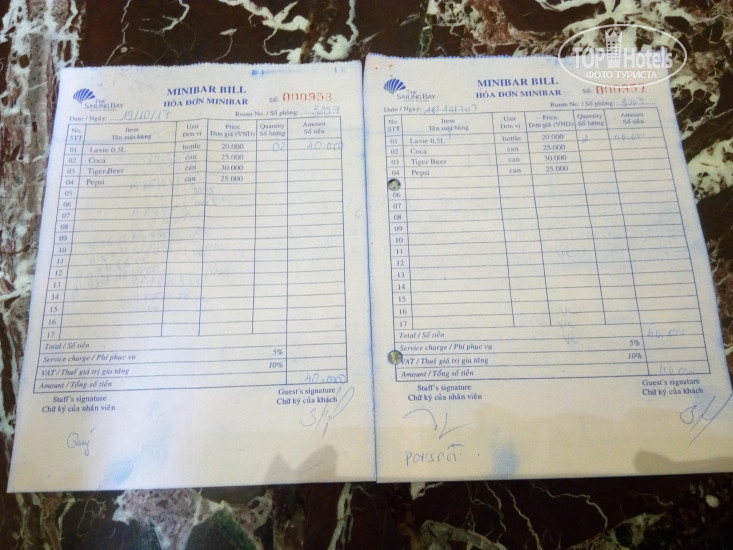 TOP Hotels
ФОТО ТУРИСТА
THE
SAILING BAY
MINIBAR BILL
HÓA ĐƠN MINIBAR
Số:
Date / Ngày: 19/10/17
Room No. / Số phòng: 3/07
No. Item Unit Price Quantity Amount
STT Tên mặt hàng Đơn vị Đơn giá (VND) Số lượng Số tiền
01 Lavie 0,5L bottle 20.000 02 40.000
02 Coca can 25.000
03 Tiger Beer can 30.000
04 Pepsi can 25.000
05
06
07
08
09
10
11
12
13
14
15
16
17
Total / Số tiền
Service charge / Phí phục vụ 5%
VAT / Thuế giá trị gia tăng 10%
Amount / Tổng số tiền 40.000
Staff's signature Guest's signature
Chữ ký của nhân viên Chữ ký của khách
Quý
THE
SAILING BAY
MINIBAR BILL
HÓA ĐƠN MINIBAR
Số:
Date / Ngày:
Room No. / Số phòng:
No. Item Unit Price Quantity Amount
STT Tên mặt hàng Đơn vị Đơn giá (VND) Số lượng Số tiền
01 Lavie 0,5L bottle 20.000 2
02 Coca can 25.000
03 Tiger Beer can 30.000
04 Pepsi can 25.000
06
07
08
09
10
11
12
13
14
15
16
17
Total / Số tiền
Service charge / Phí phục vụ 5%
VAT / Thuế giá trị gia tăng 10%
Amount / Tổng số tiền
Staff's signature Guest's signature
Chữ ký của nhân viên Chữ ký của khách